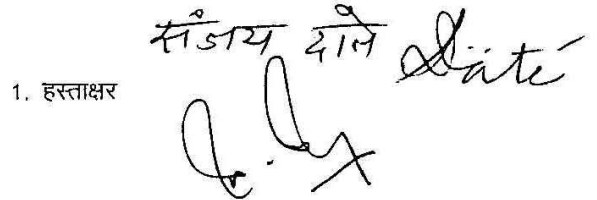 संजय दाते Däté
1. हस्ताक्षर